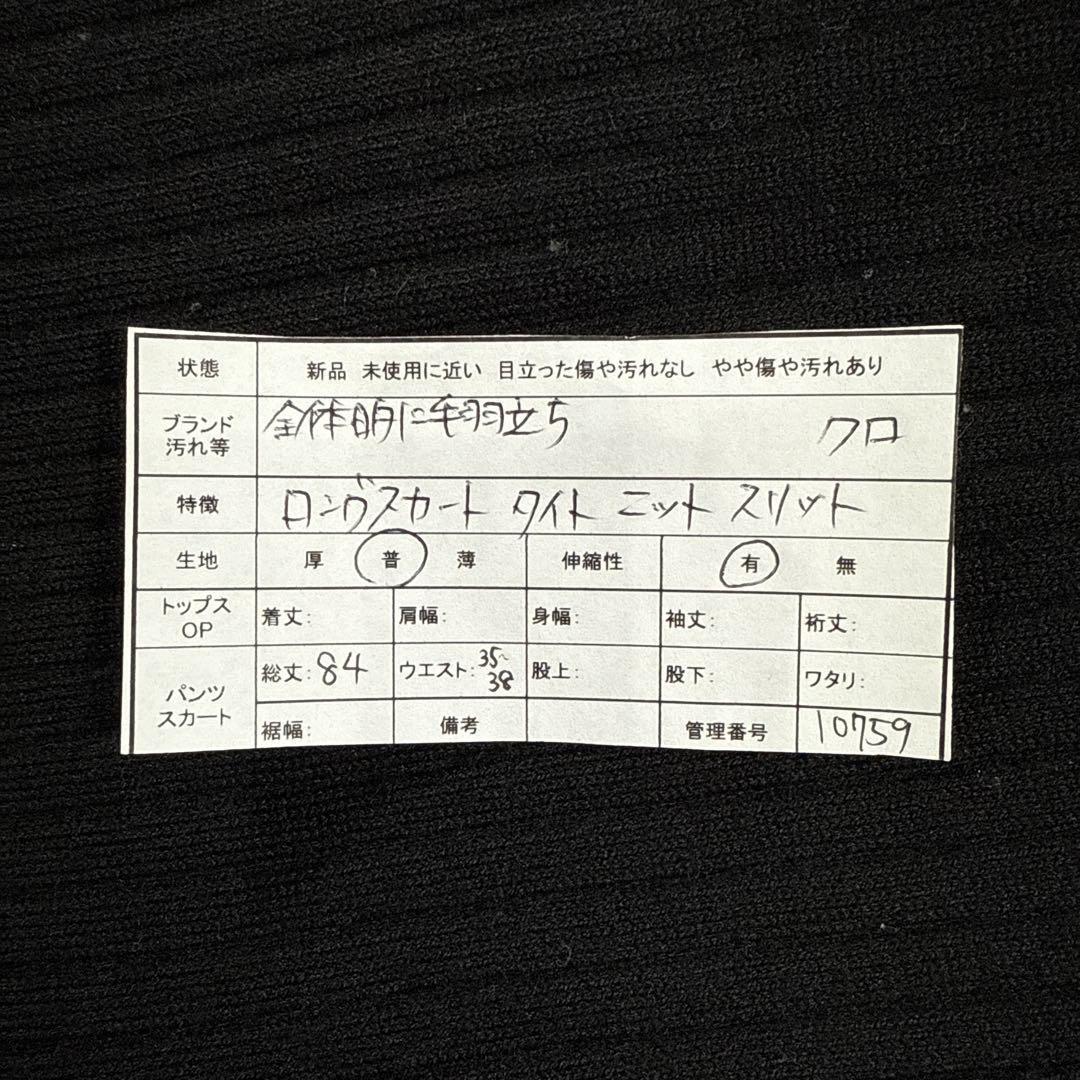 状態 新品 未使用に近い 目立った傷や汚れなし やや傷や汚れあり
ブランド 全体的に毛羽立ち クロ
汚れ等
特徴 ロングスカート タイト ニット スリット
生地 厚 普 薄 伸縮性 有 無
トップス OP 着丈: 肩幅: 身幅: 袖丈: 裄丈:
パンツ スカート 総丈:84 ウエスト:35~38 股上: 股下: ワタリ:
裾幅: 備考 管理番号 10759